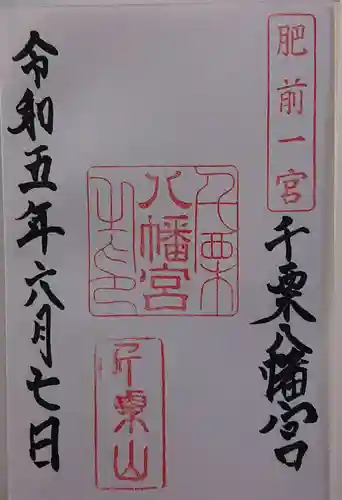 肥前一宮
千栗八幡宮
千栗
八幡宮
千栗山
令和五年六月七日